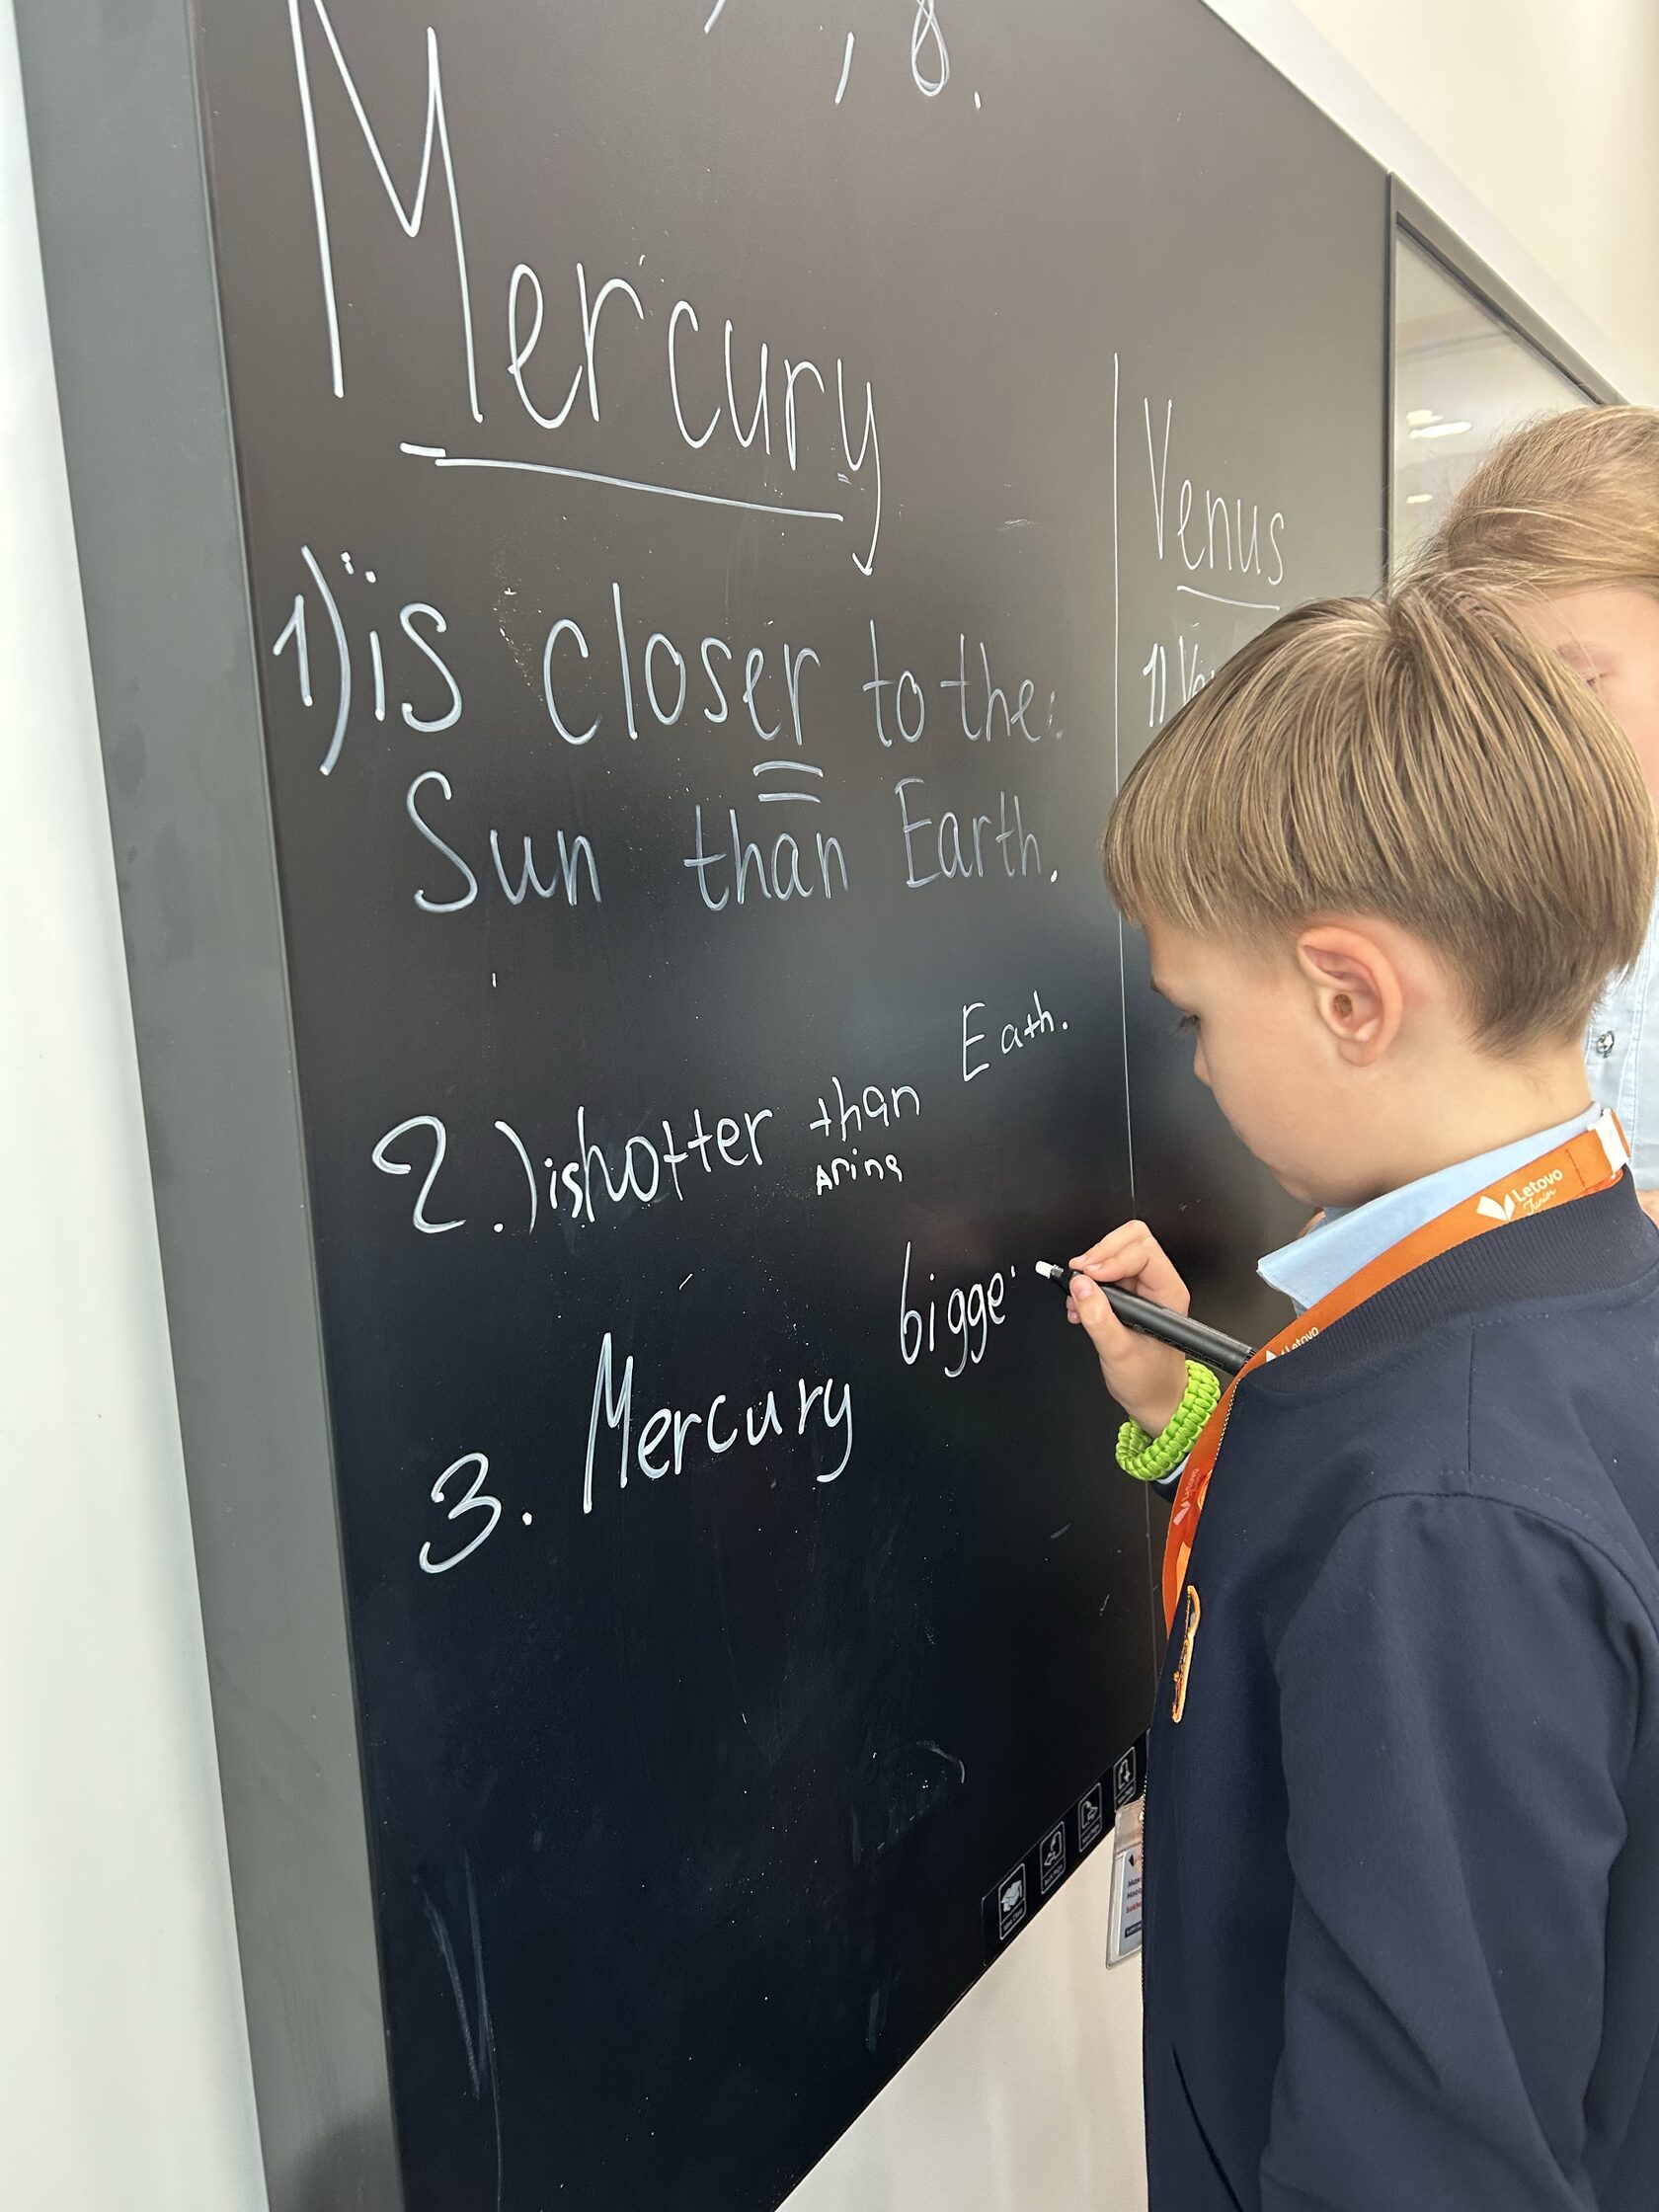 , 8.
Mercury
1) is closer to the
Sun than Earth.
2.) is hotter than Eath.
Arina
3. Mercury bigge
Venus
1)
Letovo
Junior
Letovo